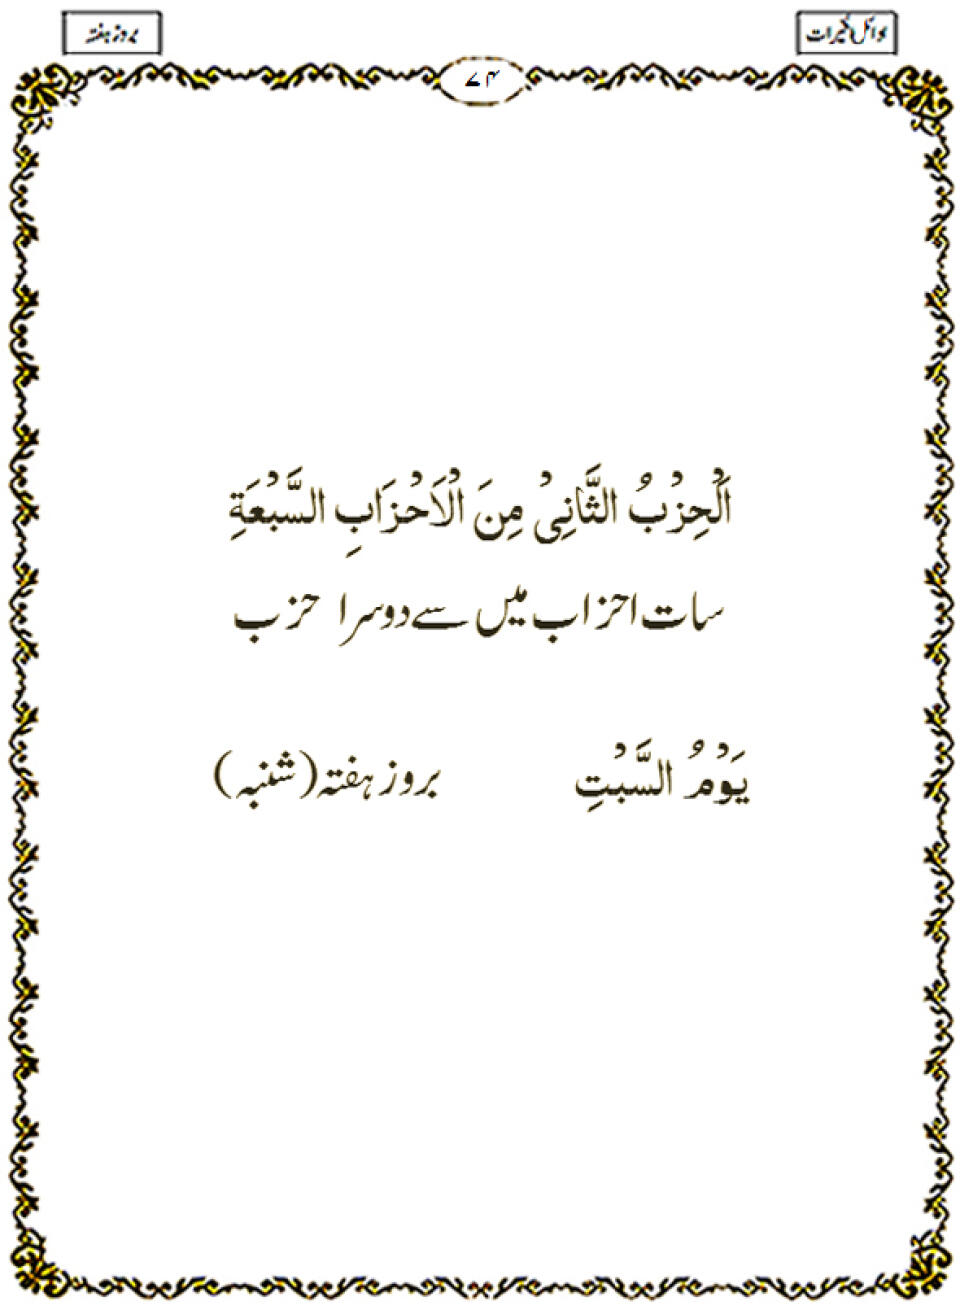 بروز ہفتہ
۷۴
اَلْحِزْبُ الثَّانِیْ مِنَ الْاَحْزَابِ السَّبْعَةِ
سات احزاب میں سے دوسرا حزب
یَوْمُ السَّبْتِ بروز ہفتہ (شنبہ)